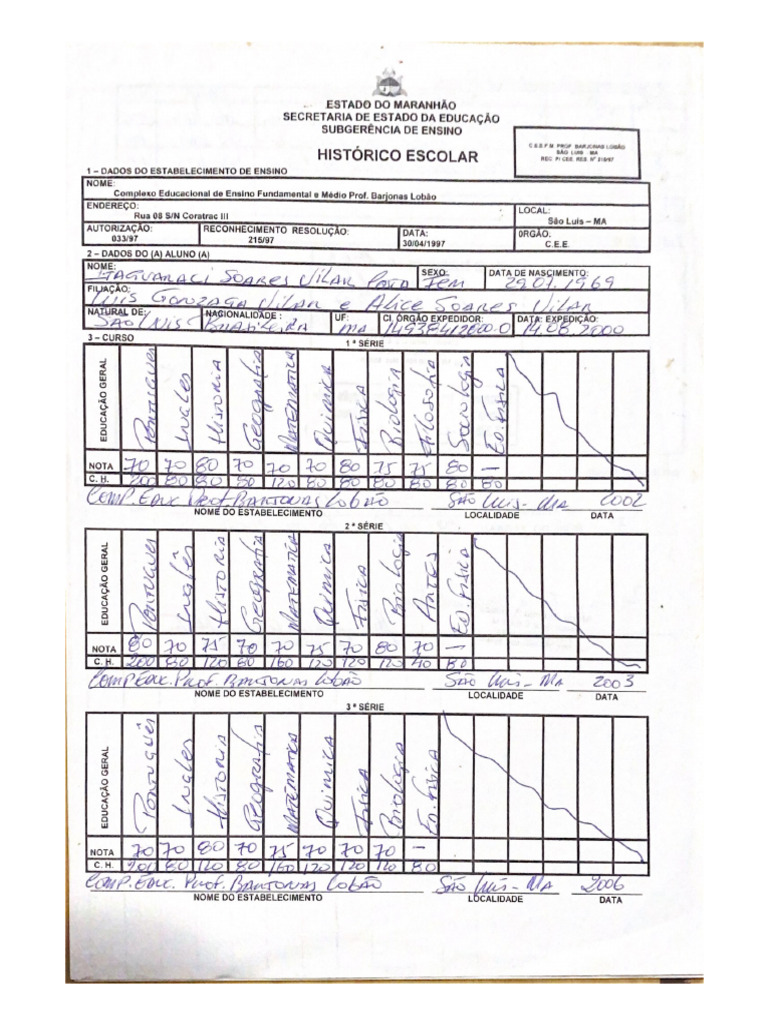 ESTADO DO MARANHÃO
SECRETARIA DE ESTADO DA EDUCAÇÃO
SUBGERÊNCIA DE ENSINO
HISTÓRICO ESCOLAR
C.E.E.F.M. PROF. BARJONAS LOBÃO
SÃO LUIS - MA
REC. P/ CEE. RES. Nº 215/97
1 – DADOS DO ESTABELECIMENTO DE ENSINO
NOME:
Complexo Educacional de Ensino Fundamental e Médio Prof. Barjonas Lobão
ENDEREÇO: LOCAL:
Rua 08 S/N Coratrac III São Luis – MA
AUTORIZAÇÃO: RECONHECIMENTO RESOLUÇÃO: DATA: ORGÃO.
033/97 215/97 30/04/1997 C.E.E.
2 – DADOS DO (A) ALUNO (A)
NOME: Itaguaraci Soares Vilar SEXO: Fem DATA DE NASCIMENTO: 29.01.1969
FILIAÇÃO: Luis Gonzaga Vilar e Alice Soares Vilar
NATURAL DE: São Luis NACIONALIDADE : Brasileira UF: MA CI. ÓRGÃO EXPEDIDOR: DATA: EXPEDIÇÃO: 14.08.2000
3 – CURSO 1 ª SÉRIE
EDUCAÇÃO GERAL Portugues Ingles Historia Geografia Matematica Quimica Fisica Biologia Filosofia Sociologia Ed. Fisica
NOTA 70 70 80 70 70 70 80 75 75 80 —
C. H. 200 80 80 80 120 80 80 80 80 80 80
Comp. Educ. Prof. Barjonas Lobão São Luis - Ma 2002
NOME DO ESTABELECIMENTO LOCALIDADE DATA
2 ª SÉRIE
EDUCAÇÃO GERAL Portugues Inglês Historia Geografia Matematica Quimica Fisica Biologia Artes Ed. Fisica
NOTA 80 70 75 70 70 75 70 80 70 —
C. H. 200 80 120 80 160 120 120 120 40 80
Comp. Educ. Prof. Barjonas Lobão São Luis - Ma 2003
NOME DO ESTABELECIMENTO LOCALIDADE DATA
3 ª SÉRIE
EDUCAÇÃO GERAL Português Ingles Historia Geografia Matematica Quimica Fisica Biologia Ed. Fisica
NOTA 70 70 80 70 75 70 70 70 —
C. H. 200 80 120 80 160 120 120 120 80
Comp. Educ. Prof. Barjonas Lobão São Luis - Ma 2006
NOME DO ESTABELECIMENTO LOCALIDADE DATA